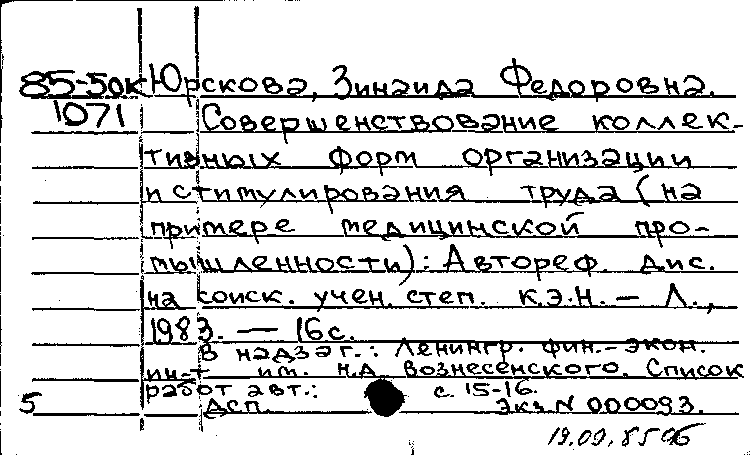 85-50к Юрскова, Зинаида Федоровна.
1071 Совершенствование коллек-
тивных форм организации
и стимулирования труда (на
примере медицинской про-
мышленности): Автореф. дис.
на соиск. учен. степ. к.э.н. — Л.,
1983. — 16 с.
В надзаг.: Ленингр. фин.-экон.
ин-т им. Н.А. Вознесенского. Список
работ авт.: с. 15-16.
5 ДСП. Экз. N 000093.
19.09.85